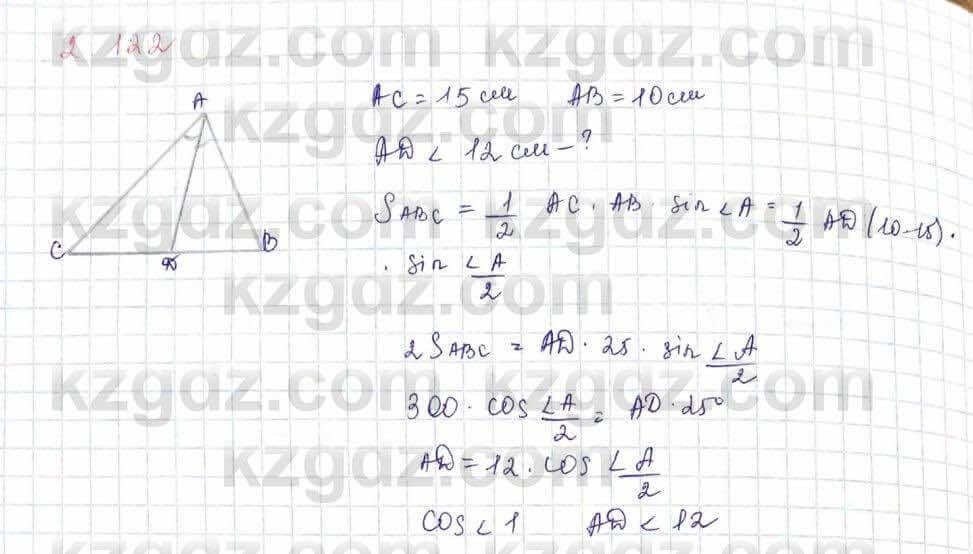 2.122
kzgdz.com
A
C
B
AC = 15 см AB = 10 см
AD < 12 см – ?
S ABC = 1/2 AC · AB · sin ∠A = 1/2 AD (10-15) ·
· sin ∠A/2
2 S ABC = AD · 25 · sin ∠A/2
300 · cos ∠A/2 = AD · 25
AD = 12 · cos ∠A/2
cos < 1 AD < 12